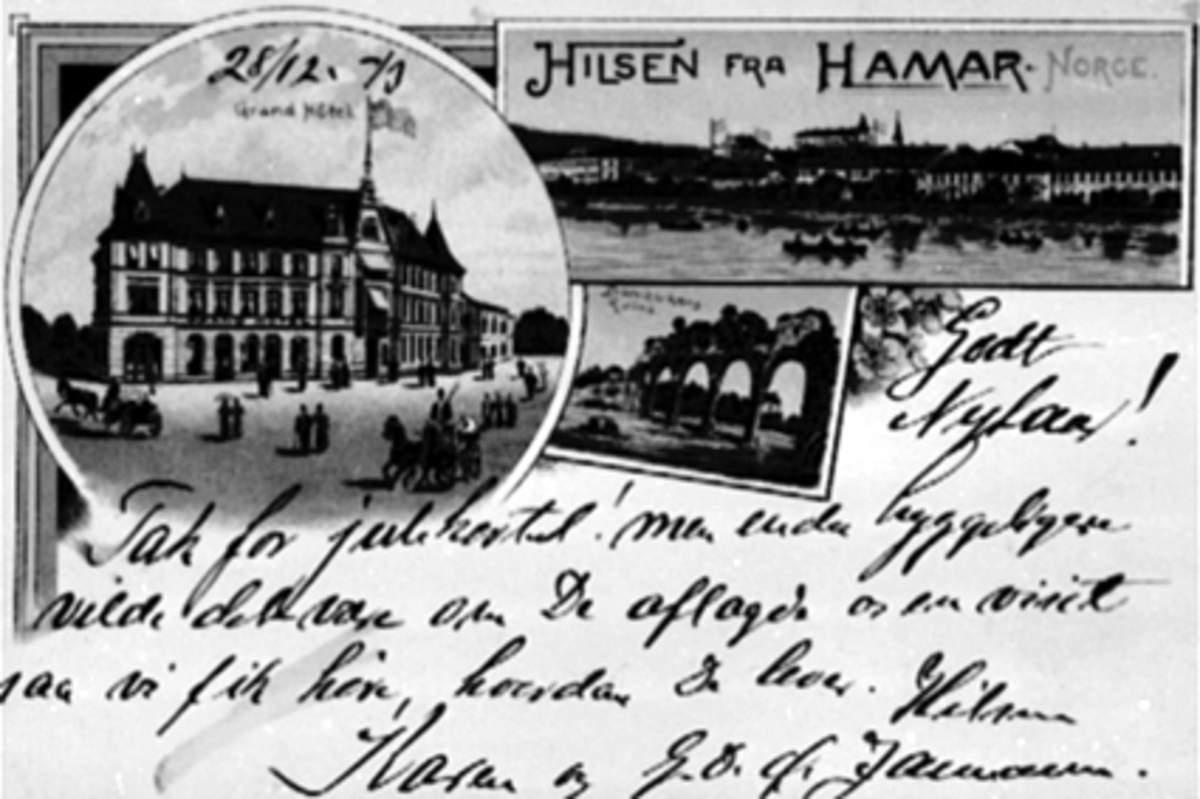 28/12.
Grand Hôtel
HILSEN FRA HAMAR. NORGE.
Godt
Nytaar!
Tak for julekortet! men endda hyggeligere
vilde det være om De aflagde os en visit
saa vi fik høre, hvordan De lever. Hilsen
Karen og